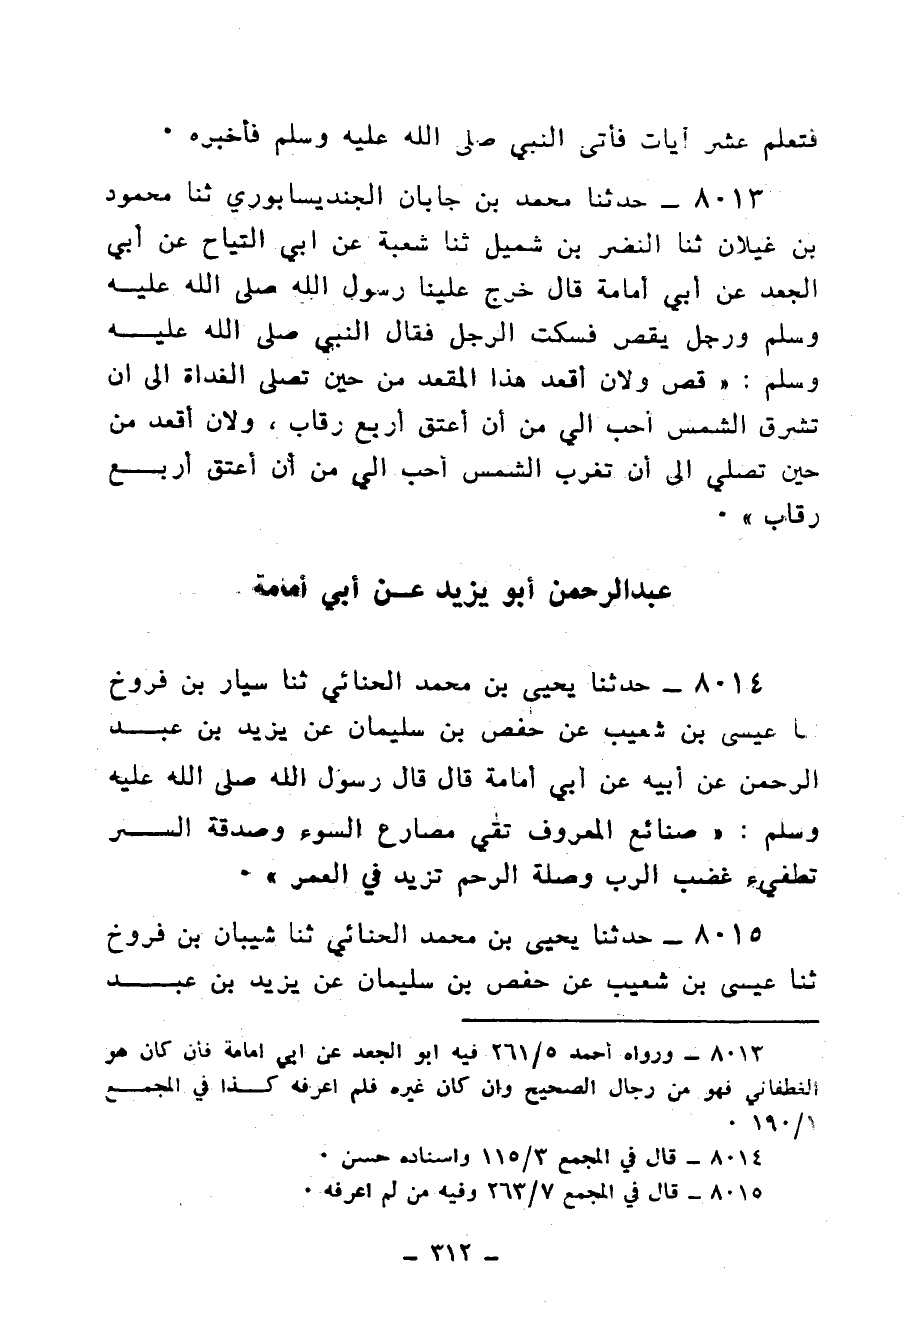 فتعلم عشر آيات فأتى النبي صلى الله عليه وسلم فأخبره ٠
٨٠١٣ ــ حدثنا محمد بن جابان الجنديسابوري ثنا محمود
بن غيلان ثنا النضر بن شميل ثنا شعبة عن ابي التياح عن أبي
الجعد عن أبي أمامة قال خرج علينا رسول الله صلى الله عليـــه
وسلم ورجل يقص فسكت الرجل فقال النبي صلى الله عليـــه
وسلم : « قص ولان أقعد هذا المقعد من حين تصلى الغداة الى ان
تشرق الشمس أحب الي من أن أعتق أربع رقاب ، ولان أقعد من
حين تصلي الى أن تغرب الشمس أحب الي من أن أعتق أربـــع
رقاب » ٠
عبدالرحمن أبو يزيد عــن أبي أمامة
٨٠١٤ ــ حدثنا يحيى بن محمد الحنائي ثنا سيار بن فروخ
ـا عيسى بن شعيب عن حفص بن سليمان عن يزيد بن عبـــد
الرحمن عن أبيه عن أبي أمامة قال قال رسول الله صلى الله عليه
وسلم : « صنائع المعروف تقي مصارع السوء وصدقة الســـر
تطفيء غضب الرب وصلة الرحم تزيد في العمر » ٠
٨٠١٥ ــ حدثنا يحيى بن محمد الحنائي ثنا شيبان بن فروخ
ثنا عيسى بن شعيب عن حفص بن سليمان عن يزيد بن عبـــد
٨٠١٣ ــ ورواه أحمد ٢٦١/٥ فيه ابو الجعد عن ابي امامة فأن كان هو
الغطفاني فهو من رجال الصحيح وان كان غيره فلم اعرفه كـــذا في المجمـــع
١٩٠/١ ٠
٨٠١٤ ــ قال في المجمع ١١٥/٣ واسناده حسن ٠
٨٠١٥ ــ قال في المجمع ٢٦٣/٧ وفيه من لم اعرفه ٠
ــ ٣١٢ ــ